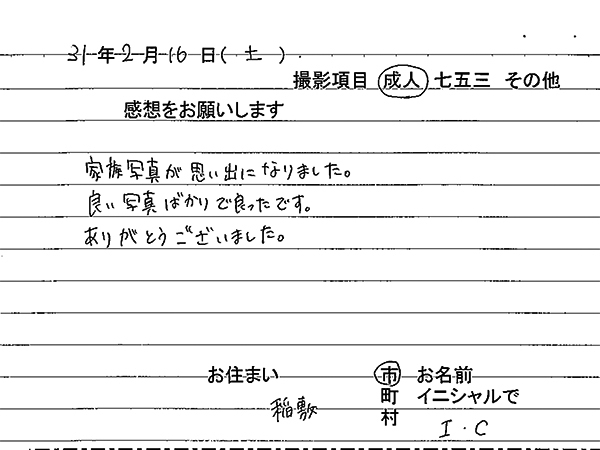 31年2月16日(土)
撮影項目 成人 七五三 その他
感想をお願いします
家族写真が思い出になりました。
良い写真ばかりで良ったです。
ありがとうございました。
お住まい 稲敷 市町村
お名前 イニシャルで I・C